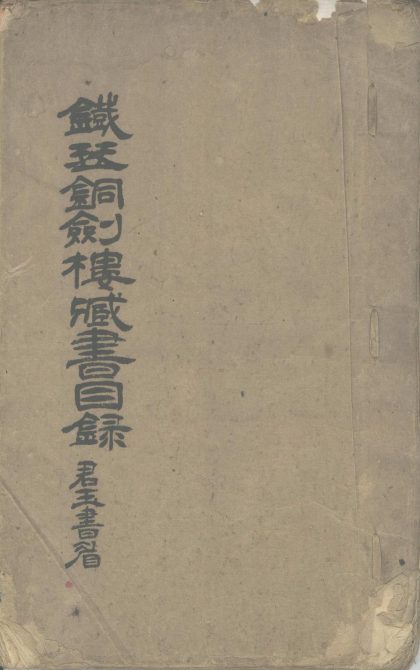 鐵琴銅劍樓臧書目錄
君玉書眉